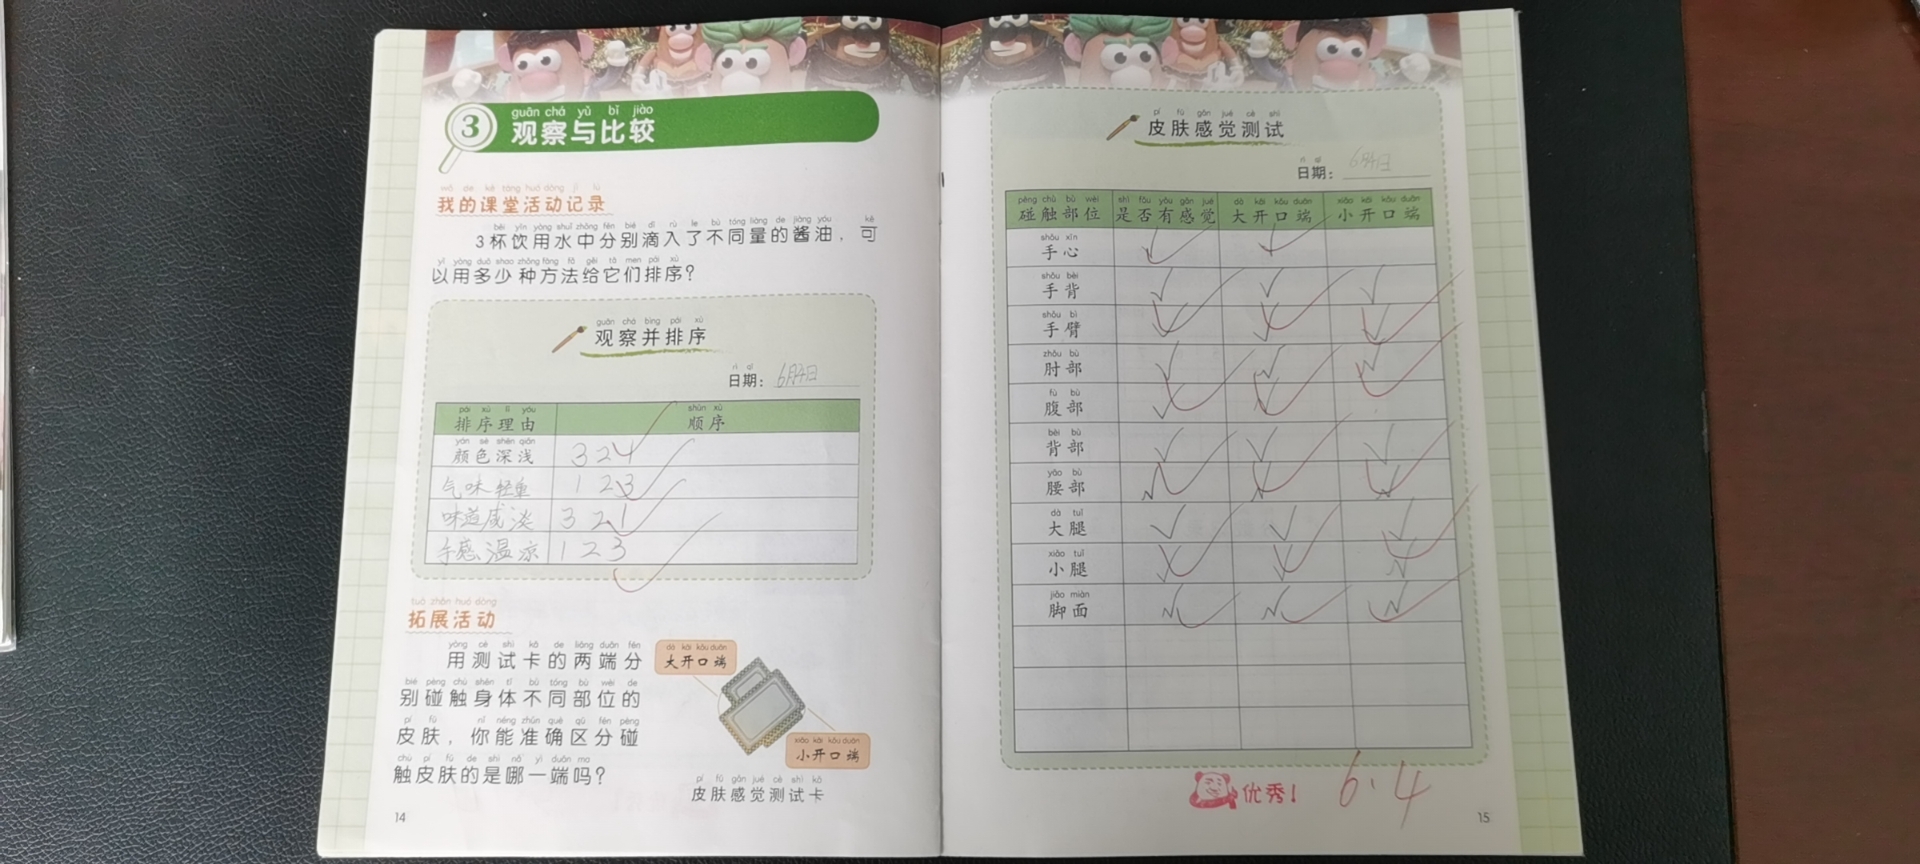 guān chá yǔ bǐ jiào
3 观察与比较
wǒ de kè táng huó dòng jì lù
我的课堂活动记录
bēi yǐn yòng shuǐ zhōng fēn bié dī rù le bù tóng liàng de jiàng yóu kě
3杯饮用水中分别滴入了不同量的酱油，可
yǐ yòng duō shao zhǒng fāng fǎ gěi tā men pái xù
以用多少种方法给它们排序？
guān chá bìng pái xù
观察并排序
rì qī
日期：6月4日
pái xù lǐ yóu shùn xù
排序理由 顺序
yán sè shēn qiǎn
颜色深浅 3 2 4
气味轻重 1 2 3
味道咸淡 3 2 1
手感温凉 1 2 3
tuò zhǎn huó dòng
拓展活动
yòng cè shì kǎ de liǎng duān fēn
用测试卡的两端分
bié pèng chù shēn tǐ bù tóng bù wèi de
别碰触身体不同部位的
pí fū nǐ néng zhǔn què qū fēn pèng
皮肤，你能准确区分碰
chù pí fū de shì nǎ yì duān ma
触皮肤的是哪一端吗？
dà kāi kǒu duān
大开口端
xiǎo kāi kǒu duān
小开口端
pí fū gǎn jué cè shì kǎ
皮肤感觉测试卡
14
pí fū gǎn jué cè shì
皮肤感觉测试
rì qī
日期：6月4日
pèng chù bù wèi shì fǒu yǒu gǎn jué dà kāi kǒu duān xiǎo kāi kǒu duān
碰触部位 是否有感觉 大开口端 小开口端
shǒu xīn
手心 ✓ ✓
shǒu bèi
手背 ✓ ✓ ✓
shǒu bì
手臂 ✓ ✓ ✓
zhǒu bù
肘部 ✓ ✓ ✓
fù bù
腹部 ✓ ✓
bèi bù
背部 ✓ ✓ ✓
yāo bù
腰部 ✓ ✓ ✓
dà tuǐ
大腿 ✓ ✓ ✓
xiǎo tuǐ
小腿 ✓ ✓ ✓
jiǎo miàn
脚面 ✓ ✓ ✓
优秀！ 6.4
15